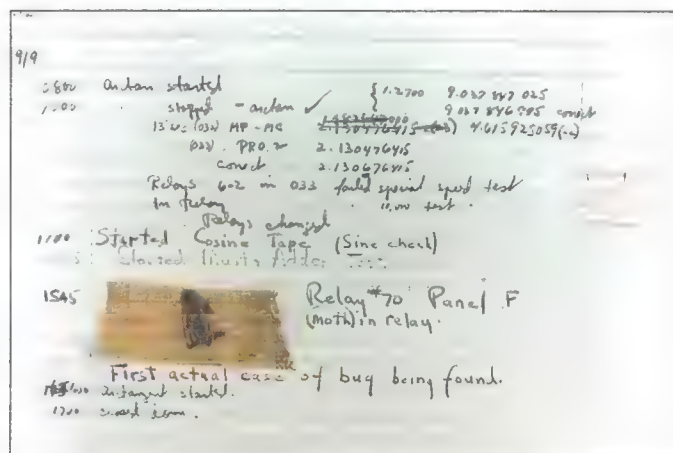 9/9
0800 antan started { 1.2700 9.037 847 025
1000 " stopped - antan ✓ 9.037 846 995 correct
13"uc (032) MP - MC 2.130476415 4.615925059(-2)
(033) PRO 2 2.130476415
correct 2.130676415
Relays 6-2 in 033 failed special speed test
in relay " 11.000 test.
Relays changed
1100 Started Cosine Tape (Sine check)
Started Multi Adder Test.
1545 Relay #70 Panel F
(Moth) in relay.
First actual case of bug being found.
1630 antangent started.
1700 closed down.